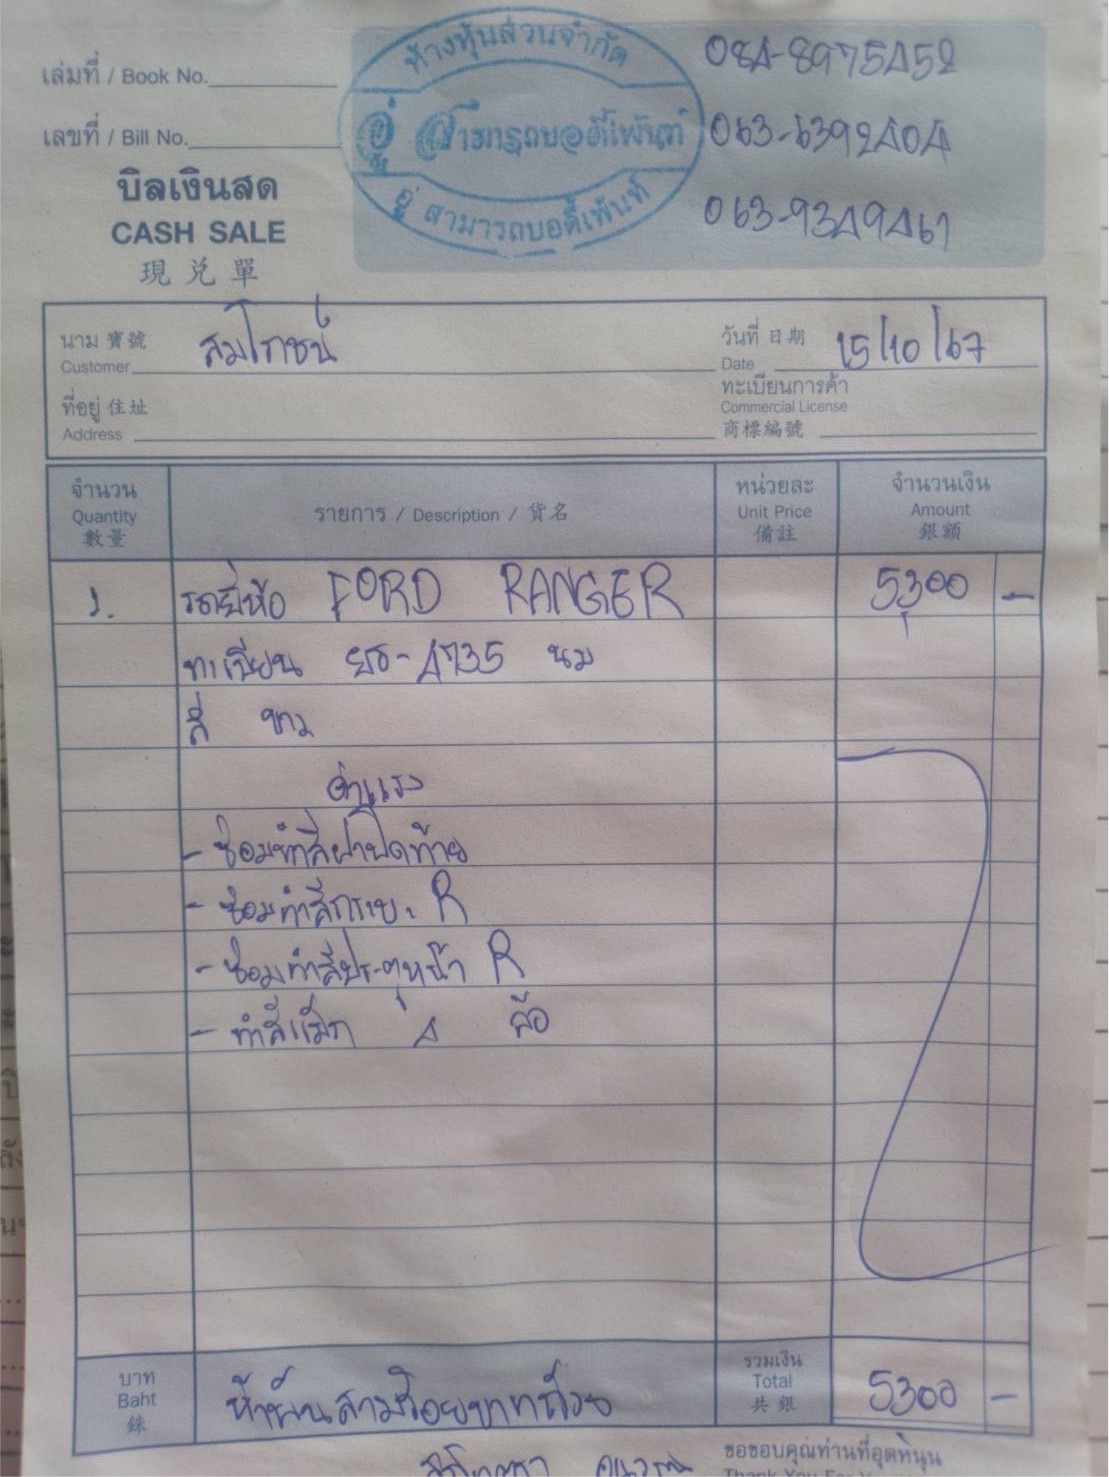 ห้างหุ้นส่วนจำกัด
อู่ สามารถบอดี้เพ้นท์
อู่ สามารถบอดี้เพ้นท์
084-8975452
063-6392404
063-9349461
เล่มที่ / Book No.
เลขที่ / Bill No.
บิลเงินสด
CASH SALE
現兌單
นาม 寶號 สมโภชน์ วันที่ 日期 15/10/67
Customer Date
ที่อยู่ 住址 ทะเบียนการค้า
Address Commercial License
商標編號
จำนวน รายการ / Description / 貨名 หน่วยละ จำนวนเงิน
Quantity Unit Price Amount
數量 備註 銀額
1. รถยี่ห้อ FORD RANGER 5300 -
ทะเบียน ยธ-4735 นม
สี ขาว
ค่าแรง
- ซ่อมทำสีฝาปิดท้าย
- ซ่อมทำสีกระบะ R
- ซ่อมทำสีประตูหน้า R
- ทำสีแม็ก 4 ล้อ
บาท รวมเงิน
Baht ห้าพันสามร้อยบาทถ้วน Total 5300 -
銖 共銀
ขอขอบคุณท่านที่อุดหนุน